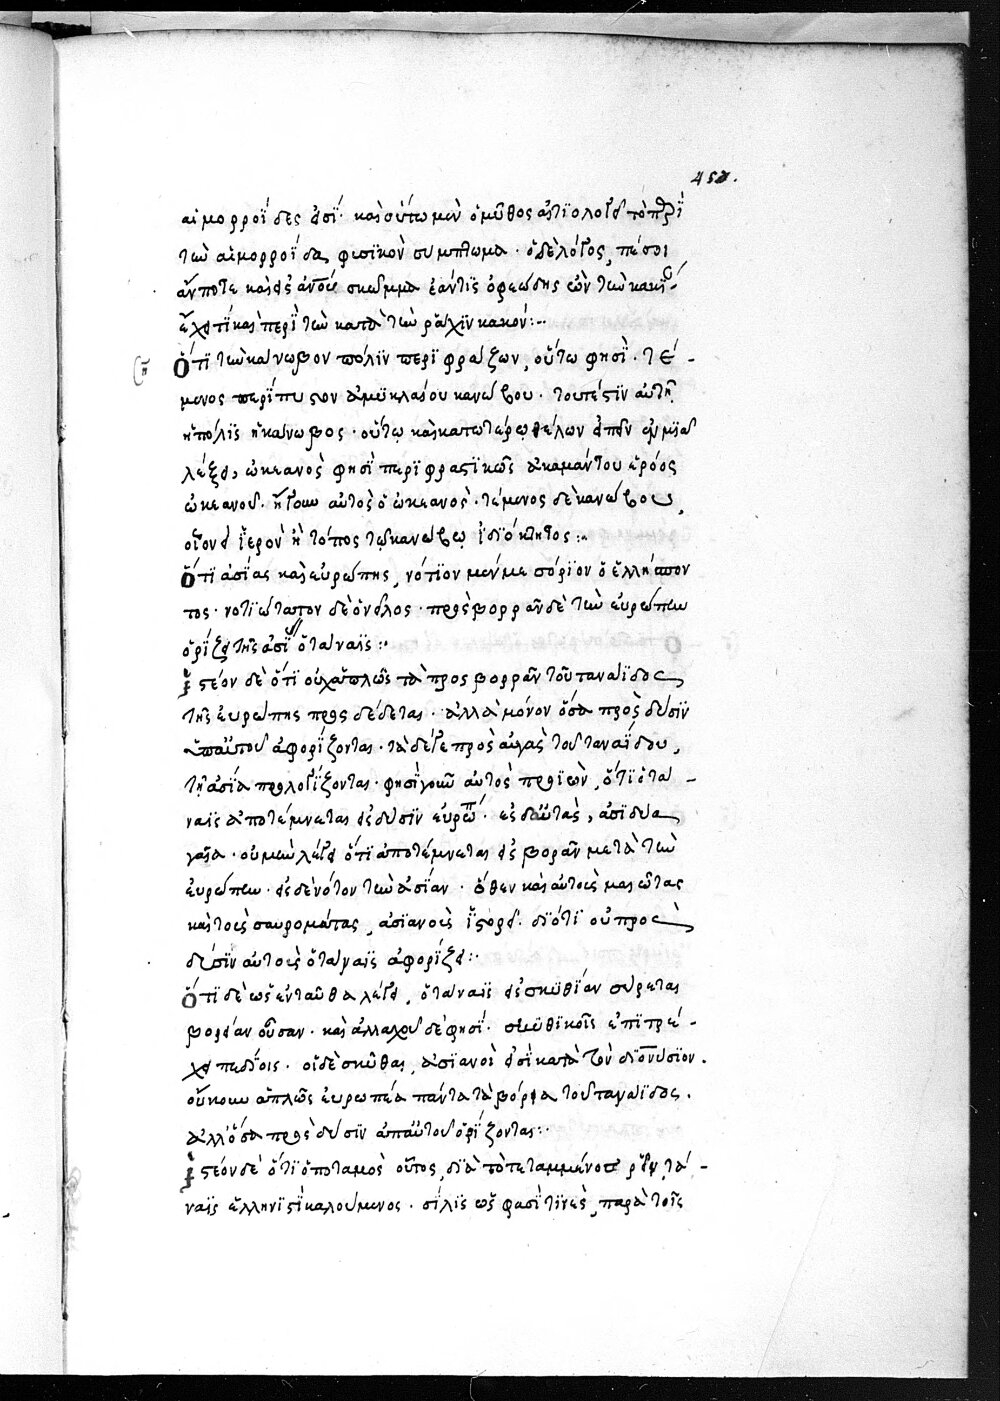 450.
αἱμορροΐδες εἰσί· καὶ οὕτω μὲν ὁ μῦθος αἰτιολογεῖ τὸ περὶ
τὴν αἱμορροΐδα φυσικὸν σύμπτωμα· ὁ δὲ λόγος, πέσοι
ἄν ποτε καὶ εἰς αὐτοῦ σκῶμμα ἐάν τις ὀφεώδης ὢν τὴν κακί-
ἔχῃ τι καὶ περὶ τὴν κατὰ τὴν ῥάχιν κακόν:-
Ὅτι τὴν κάνωβον πόλιν περιφράζων, οὕτω φησί· τέ-
μενος περίπυστον ἀμυκλαίου κανώβου· τουτέστιν αὐτὴ
ἡ πόλις ἡ κάνωβος· οὕτω καὶ κατωτέρω θέλων εἰπεῖν ἐν μιᾷ
λέξει, ὠκεανὸς φησὶ περιφραστικῶς ἀκαμάντου ῥόος
ὠκεανοῦ· ἤγουν αὐτὸς ὁ ὠκεανός· τέμενος δὲ κανώβου,
οἱονεὶ ἱερὸν ἢ τόπος τῷ κανώβῳ ἰδιόκτητος:-
Ὅτι ἀσίας καὶ εὐρώπης, νότιον μὲν μεσόριον ὁ ἑλλήσπον
τος· νοτιώτατον δὲ ὁ νεῖλος· πρὸς βορρᾶν δὲ τὴν εὐρώπην
ὁρίζει τῆς ἀσίας ὁ τάναϊς:-
Ἰστέον δὲ ὅτι οὐχ ἁπλῶς τὰ πρὸς βορρᾶν τοῦ ταναΐδος
τῆς εὐρώπης προσδέδεται· ἀλλὰ μόνον ὅσα πρὸς δύσιν
ὑπ' αὐτοῦ ἀφορίζονται· τὰ δέ γε πρὸς αὐγὰς τοῦ ταναΐδου,
τῇ ἀσίᾳ προσλογίζονται· φησὶ γοῦν αὐτὸς προϊὼν, ὅτι ὁ τά-
ναϊς ἀποτέμνεται εἰς δύσιν εὐρώπη· ἐς δ' αὐγὰς, ἀσίδα
γαῖα· οὐ μὴν λέγει ὅτι ἀποτέμνεται εἰς βορᾶν μετὰ τὴν
εὐρώπην· εἰς δὲ νότον τὴν ἀσίαν· ὅθεν καὶ αὐτοὺς μαιώτας
καὶ τοὺς σαυρομάτας, ἀσιανοὺς ἱστορεῖ· διότι οὐ πρὸς
δύσιν αὐτοὺς ὁ τάναϊς ἀφορίζει:-
Ὅτι δὲ ὡς ἐνταῦθα λέγει, ὁ τάναϊς εἰς σκυθίαν σύρεται
βορείαν οὖσαν· καὶ ἀλλαχοῦ δέ φησι· σκυθικοῖς ἐπιτρέ-
χει πεδίοις· οἱ δὲ σκύθαι, ἀσιανοὶ εἰσὶ κατὰ τὸν διονύσιον.
οὔκουν ἁπλῶς εὐρωπέα πάντα τὰ βόρεια τοῦ ταναΐδος.
ἀλλ' ὅσα πρὸς δύσιν ἀπ' αὐτοῦ ὁρίζονται:-
Ἰστέον δὲ ὅτι ὁ ποταμὸς οὗτος, διὰ τὸ τεταμμένος ῥεῖν, τά-
ναϊς ἑλληνιστὶ καλούμενος· σίλις ὥς φασί τινες, παρὰ τοῖς